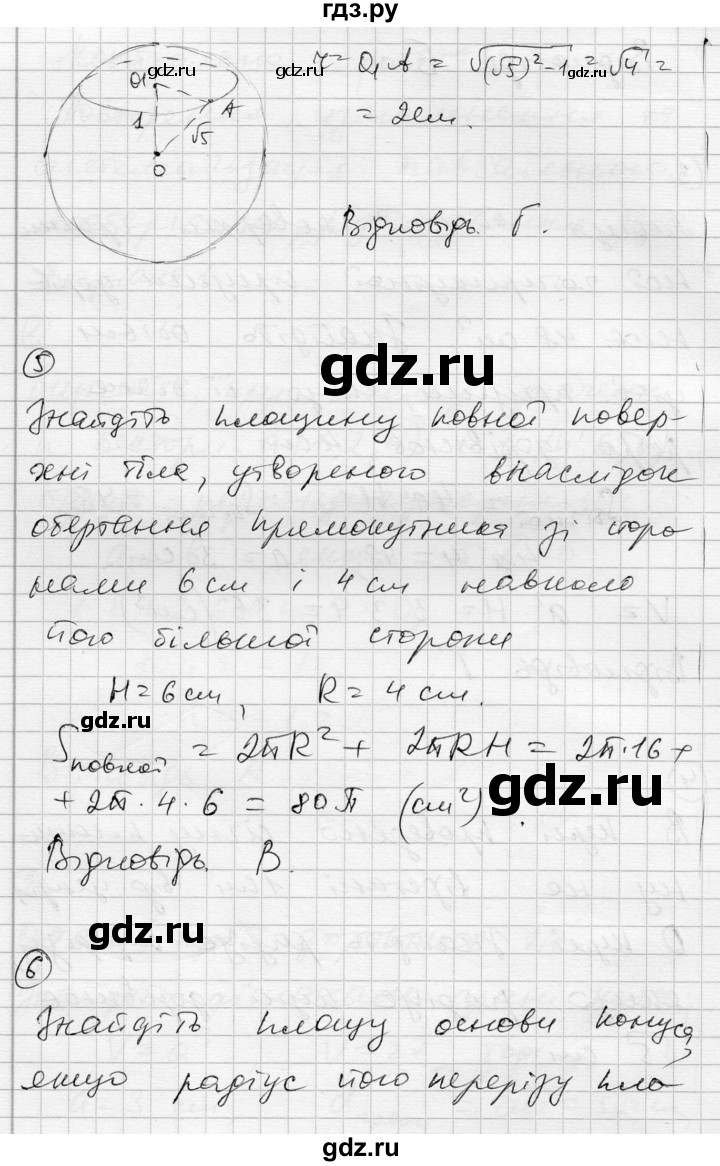 гдз.ру
r = O₁A = √((√5)² - 1) = √4 =
= 2см.
O₁
A
1
√5
O
Відповідь. Г.
5
gdz.ru
Знайдіть площину повної повер-
хні тіла, утвореного внаслідок
обертання прямокутника зі сторо
нами 6 см і 4 см навколо
його більшої сторони
H = 6 см, R = 4 см.
gdz.ru
Sповної = 2πR² + 2πRH = 2π·16 +
+ 2π · 4 · 6 = 80π (см²).
gdz.ru
Відповідь. В.
gdz.ru
6
Знайдіть площу основи конуса,
якщо радіус його перерізу пло
gdz.ru